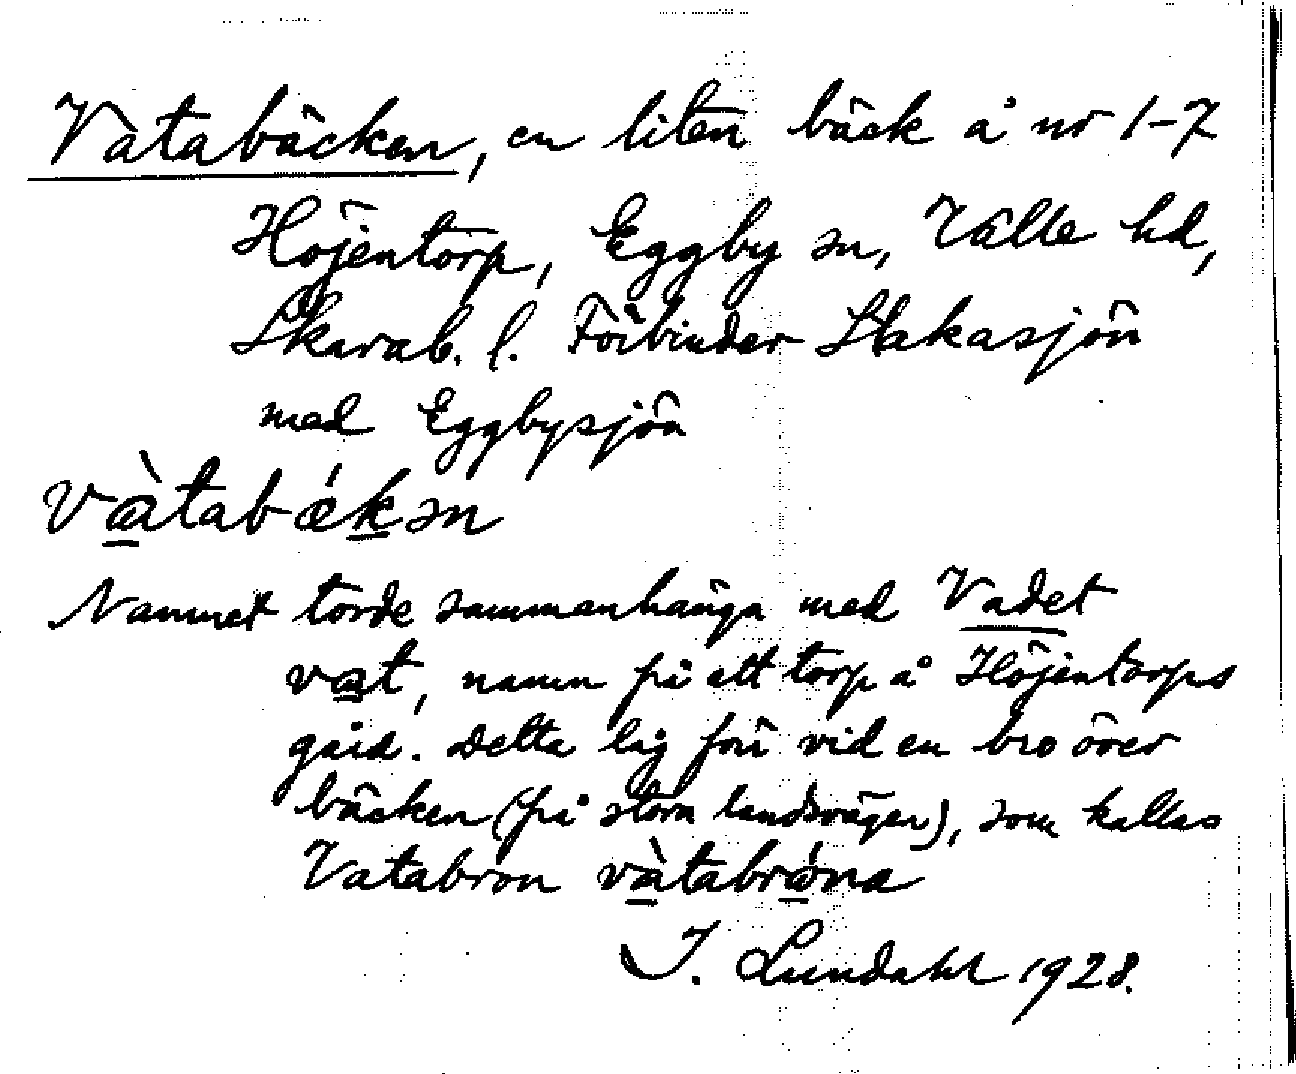 Vatabäcken, en liten bäck å nr 1-7
Höjentorp, Eggby sn, Valle hd,
Skarab. l. Förbinder Stakasjön
med Eggbysjön
vàtabǽkən
Namnet torde sammanhänga med Vadet
vat, namn på ett torp å Höjentorps
gård. Detta låg förr vid en bro över
bäcken (på stora landsvägen), som kallas
Vatabron vàtabróna
I. Lundahl 1928.